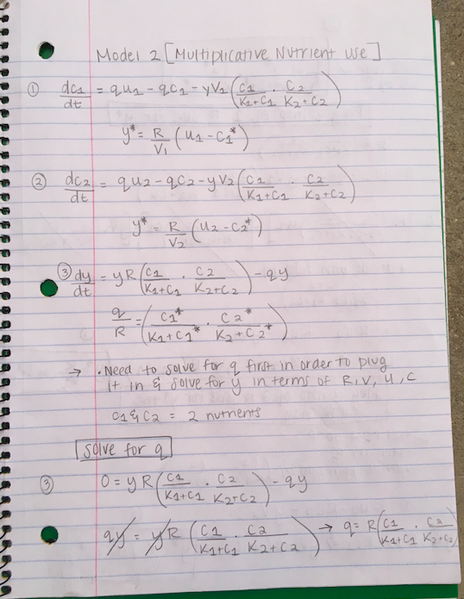 Model 2 [Multiplicative Nutrient Use]
① dc1/dt = qu1 - qc1 - yV2 (c1/(K1+c1) · c2/(K2+c2))
y* = R/V1 (u1 - c1*)
② dc2/dt = qu2 - qc2 - yV2 (c1/(K1+c1) · c2/(K2+c2))
y* = R/V2 (u2 - c2*)
③ dy/dt = yR (c1/(K1+c1) · c2/(K2+c2)) - qy
q/R = (c1*/(K1+c1*) · c2*/(K2+c2*))
→ • Need to solve for q first in order to plug
it in & solve for y in terms of R, V, u, c
c1 & c2 = 2 nutrients
solve for q
③ 0 = yR (c1/(K1+c1) · c2/(K2+c2)) - qy
qy = yR (c1/(K1+c1) · c2/(K2+c2)) → q = R(c1/(K1+c1) · c2/(K2+c2))